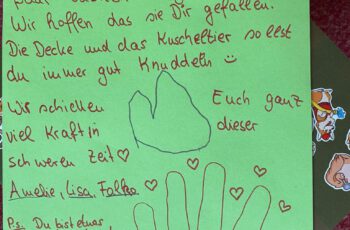 Wir hoffen das sie Dir gefallen.
Die Decke und das Kuscheltier sollst
du immer gut Knuddeln
Wir schicken Euch ganz
viel Kraft in dieser
schweren Zeit
Amelie, Lisa, Falko
P.s. Du bist